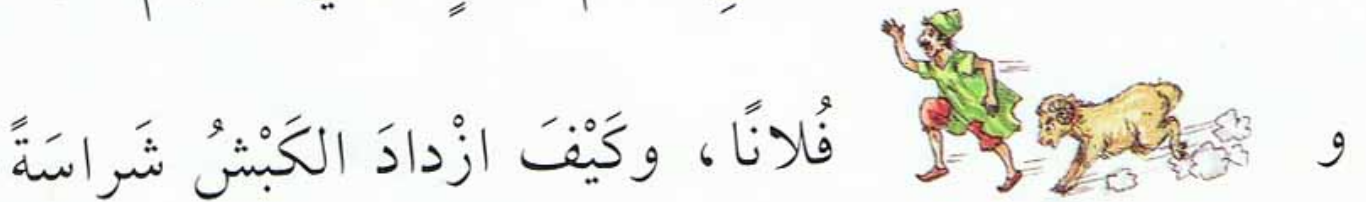 و فُلانًا، وكَيْفَ ازْدادَ الكَبْشُ شَراسَةً